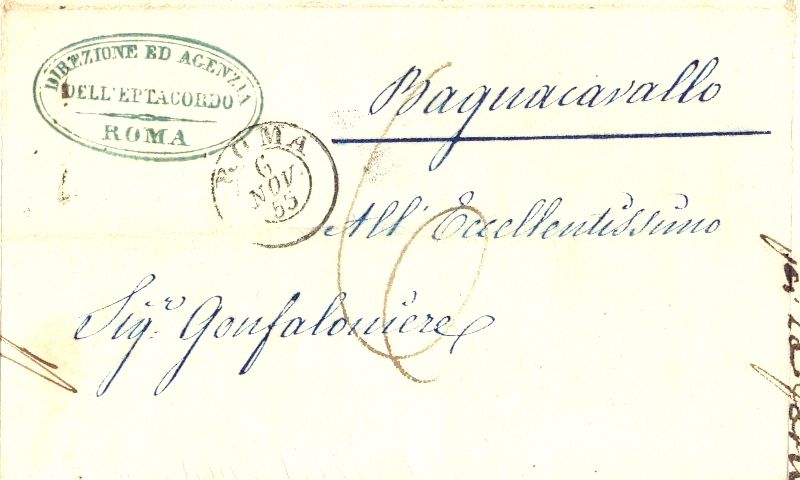 DIREZIONE ED AGENZIA
DELL'EPTACORDO
ROMA
ROMA
6
NOV.
55
Bagnacavallo
6
All' Eccellentissimo
Sigr. Gonfaloniere